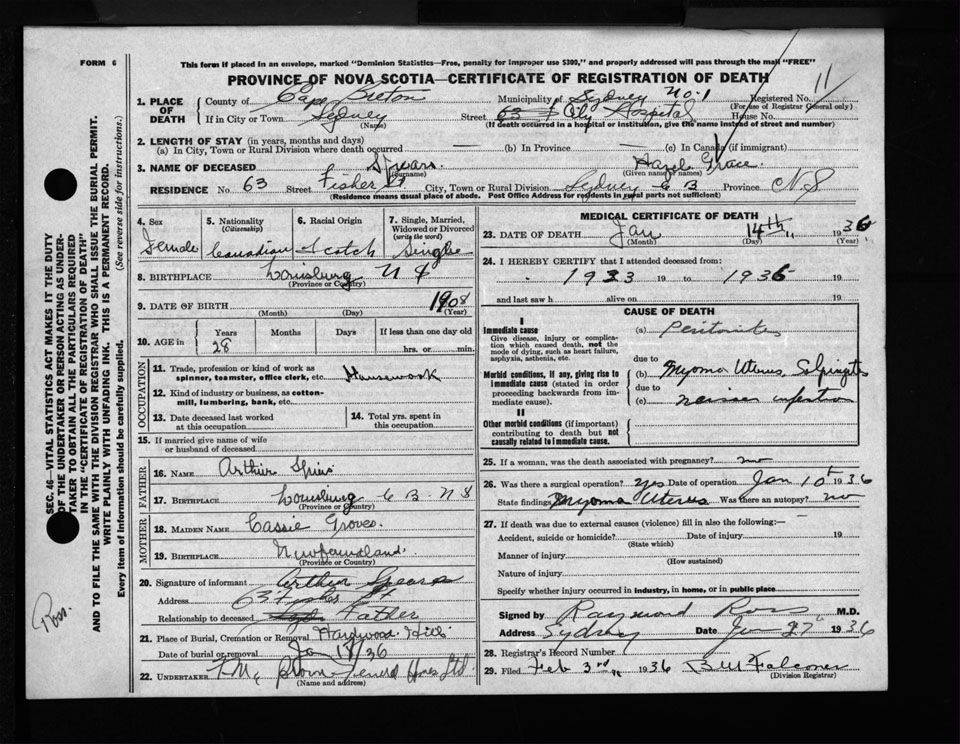 FORM 6
This form if placed in an envelope, marked "Dominion Statistics—Free, penalty for improper use $300," and properly addressed will pass through the mail "FREE"
PROVINCE OF NOVA SCOTIA—CERTIFICATE OF REGISTRATION OF DEATH
SEC. 46—VITAL STATISTICS ACT MAKES IT THE DUTY
OF THE UNDERTAKER OR PERSON ACTING AS UNDER-
TAKER TO OBTAIN ALL THE PARTICULARS REQUIRED
IN THE "CERTIFICATE OF REGISTRATION OF DEATH"
AND TO FILE THE SAME WITH THE DIVISION REGISTRAR WHO SHALL ISSUE THE BURIAL PERMIT.
WRITE PLAINLY WITH UNFADING INK. THIS IS A PERMANENT RECORD.
Every item of information should be carefully supplied. (See reverse side for instructions.)
1. PLACE OF DEATH County of Cape Breton Municipality of Sydney No. 1 Registered No. 11
(For use of Registrar General only)
If in City or Town Sydney Street 63 City Hospital House No.
(Name) (If death occurred in a hospital or institution, give the name instead of street and number)
2. LENGTH OF STAY (in years, months and days)
(a) In City, Town or Rural Division where death occurred (b) In Province (c) In Canada (if immigrant)
3. NAME OF DECEASED Spears Hazel Grace
(Surname) (Given name or names)
RESIDENCE No. 63 Street Fisher St City, Town or Rural Division Sydney C B Province N S
(Residence means usual place of abode. Post Office Address for residents in rural parts not sufficient)
4. Sex Female
5. Nationality (Citizenship) Canadian
6. Racial Origin Scotch
7. Single, Married, Widowed or Divorced (write the word) Single
8. BIRTHPLACE Louisburg N S
(Province or Country)
9. DATE OF BIRTH 1908
(Month) (Day) (Year)
10. AGE in Years 28 Months Days If less than one day old
hrs. or min.
OCCUPATION
11. Trade, profession or kind of work as
spinner, teamster, office clerk, etc. Housework
12. Kind of industry or business, as cotton-
mill, lumbering, bank, etc.
13. Date deceased last worked
at this occupation
14. Total yrs. spent in
this occupation
15. If married give name of wife
or husband of deceased
FATHER
16. NAME Arthur
17. BIRTHPLACE Louisburg C. B. N S
(Province or Country)
MOTHER
18. MAIDEN NAME Cassie Groves
19. BIRTHPLACE Newfoundland
(Province or Country)
20. Signature of informant Arthur Spears
Address 63 Fisher St.
Relationship to deceased Father
21. Place of Burial, Cremation or Removal Hardwood Hill
Date of burial or removal Jan 18/36
22. UNDERTAKER Funeral Ltd
(Name and address)
Ross
MEDICAL CERTIFICATE OF DEATH
23. DATE OF DEATH Jan 14th 1936
(Month) (Day) (Year)
24. I HEREBY CERTIFY that I attended deceased from:
1933 19 to 1936 19
and last saw h alive on 19
CAUSE OF DEATH
I
Immediate cause (a) Peritonitis
Give disease, injury or complica-
tion which caused death, not the
mode of dying, such as heart failure,
asphyxia, asthenia, etc.
due to
Morbid conditions, if any, giving rise to
immediate cause (stated in order
proceeding backwards from im-
mediate cause).
(b) Myoma Uterus, Salpingitis
due to
(c) Neisser infection
II
Other morbid conditions (if important)
contributing to death but not
causally related to immediate cause.
25. If a woman, was the death associated with pregnancy? no
26. Was there a surgical operation? yes Date of operation Jan 10 1936
State findings Myoma Uterus Was there an autopsy? no
27. If death was due to external causes (violence) fill in also the following:—
Accident, suicide or homicide? Date of injury 19
(State which)
Manner of injury
(How sustained)
Nature of injury
Specify whether injury occurred in industry, in home, or in public place
Signed by Raymond Ross M.D.
Address Sydney Date 1936
28. Registrar's Record Number
29. Filed Feb 3rd 1936 B W Falconer
(Division Registrar)